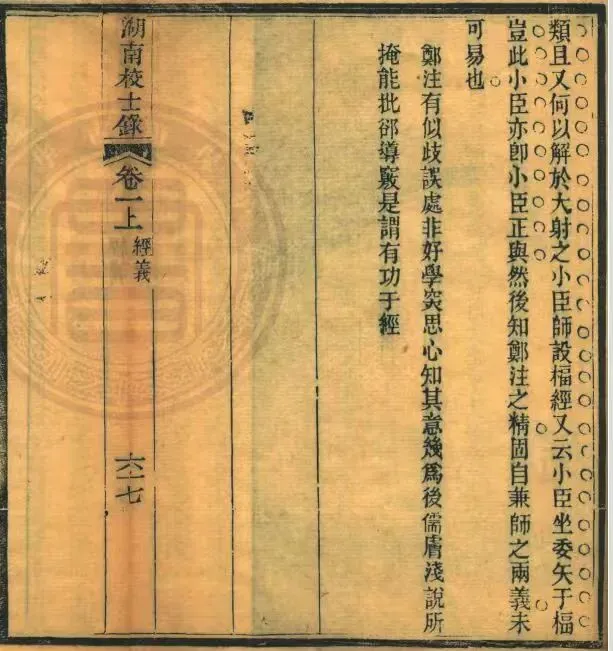 類且又何以解於大射之小臣師設楅經又云小臣坐委矢于楅
豈此小臣亦卽小臣正與然後知鄭注之精固自兼師之兩義未
可易也
鄭注有似歧誤處非好學突思心知其意幾爲後儒膚淺說所
掩能批郤導竅是謂有功于經
湖南校士錄
卷一上
經義
六十七